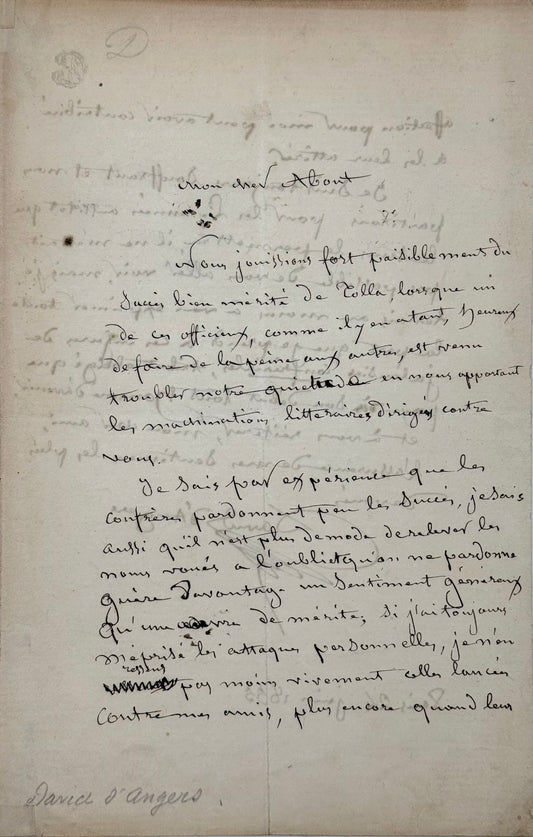 D
Mon cher About
Nous jouissions fort paisiblement du
succès bien mérité de Tolla, lorsque un
de ces officieux, comme il y en a tant, heureux
de faire de la peine aux autres, est venu
troubler notre quiétude en nous apportant
les machinations littéraires dirigées contre
vous.
Je sais par expérience que les
confrères pardonnent peu les succès, je sais
aussi qu'il n'est plus de mode de relever les
noms voués a l'oubli et qu'on ne pardonne
guère davantage un sentiment généreux
qu'une œuvre de mérite; si j'ai toujours
méprisé les attaques personnelles, je n'en
ressens
pas moins vivement celles lancées
contre mes amis, plus encore quand leur
David d'Angers